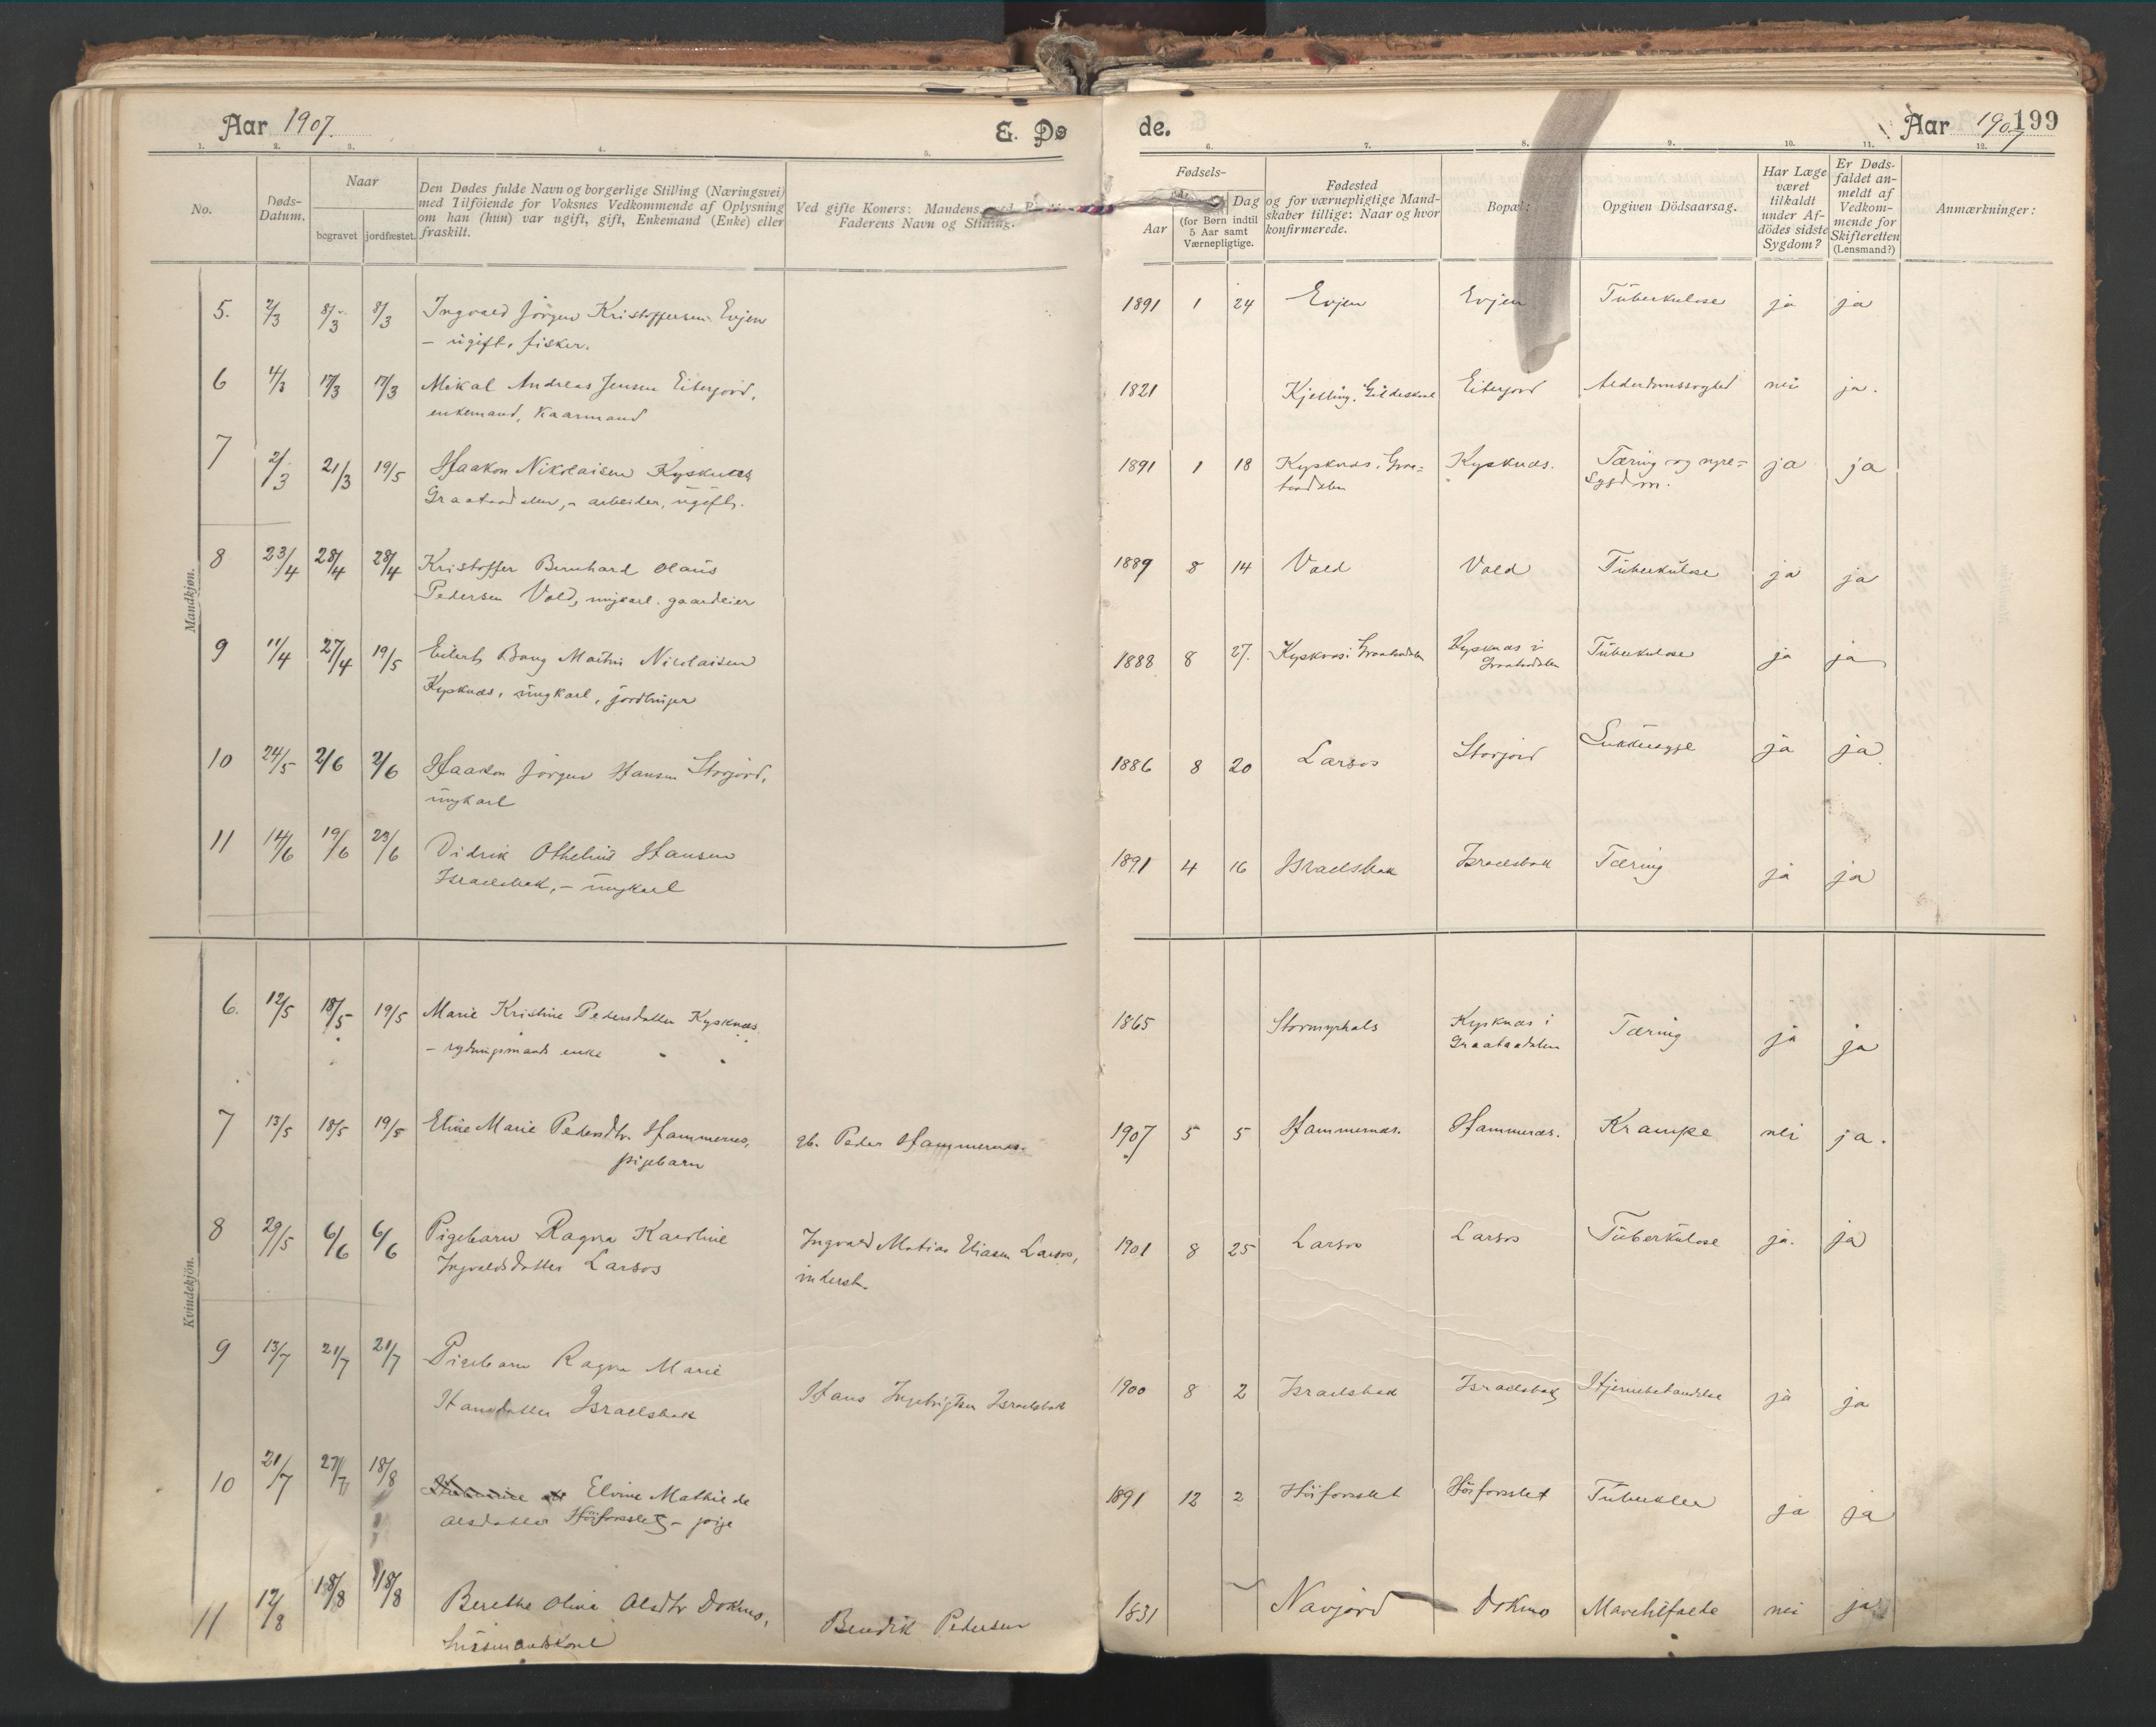 Aar 1907.
E. Dø
de.
Aar 1907
199
1. 2. 3. 4. 5. 6. 7. 8. 9. 10. 11. 12.
No.
Døds-
Datum.
Naar
begravet jordfæstet.
Den Dødes fulde Navn og borgerlige Stilling (Næringsvei)
med Tilföiende for Voksnes Vedkommende af Oplysning
om han (hun) var ugift, gift, Enkemand (Enke) eller
fraskilt.
Ved gifte Koners: Mandens,
Faderens Navn og Stilling.
Fødsels-
Aar
Dag
(for Børn indtil
5 Aar samt
Værnepligtige.
Fødested
og for værnepligtige Mand-
skaber tillige: Naar og hvor
konfirmerede.
Bopæl:
Opgiven Dödsaarsag.
Har Læge
været
tilkaldt
under Af-
dödes sidste
Sygdom?
Er Døds-
faldet an-
meldt af
Vedkom-
mende for
Skifteretten
(Lensmand?)
Anmærkninger:
Mandkjøn.
5. 2/3 8/3 8/3 Ingvald Jörgen Kristoffersen Evjen 1891 1 24 Evjen Evjen Tuberkulose ja ja
– ugift, fisker.
6 4/3 17/3 17/3 Mikal Andreas Jensen Eiterjord, 1821 Kjelling, Gildeskaal Eiterjord Alderdomssvaghed nei ja.
enkemand, kaarmand
7 2/3 21/3 19/5 Haakon Nikolaisen Kysknæs 1891 1 18 Kysknæs i Graa= Kysknæs. Tæring og nyre= ja ja
Graataadalen, – arbeider, ugift. taadalen Sygdom.
8 23/4 28/4 28/4 Kristoffer Bernhard Olaus 1889 8 14 Vold Vold Tuberkulose ja ja
Pedersen Vold, ungkarl. gaardeier
9 11/4 27/4 19/5 Eilert Bang Martin Nicolaisen 1888 8 27. Kysknæs i Graatadalen Kysknæs i Tuberkulose ja ja
Kysknæs, ungkarl, jordbruger Graatadalen
10 24/5 2/6 2/6 Haakon Jörgen Hansen Storjord, 1886 8 20 Larsos Storjord Sukkersyge ja ja
ungkarl
11 14/6 19/6 23/6 Didrik Othelius Hansen 1891 4 16 Israelsbak Israelsbak Tæring ja ja
Israelsbak, – ungkarl
Kvindekjön.
6. 12/5 18/5 19/5 Marie Kristine Pedersdatter Kysknæs, 1865 Stormyrhals Kysknæs i Tæring ja ja
– rydningsmands enke Graataadalen
7 13/5 18/5 19/5 Eline Marie Pedersdtr. Hammernes, gb. Peder Hammernæs. 1907 5 5 Hammernæs. Hammernæs. Krampe nei ja.
pigebarn
8 29/5 6/6 6/6 Pigebarn Ragna Karoline Ingvald Matias Eliasen Larsos, 1901 8 25 Larsos Larsos Tuberkulose ja. ja
Ingvaldsdatter Larsos inderst.
9 13/7 21/7 21/7 Pigebarn Ragna Marie
Hansdatter Israelsbak Hans Ingebrigtsen Israelsbak 1900 8 2 Israelsbak Israelsbak Hjernebetændelse ja ja
10 21/7 27/7 18/8 Elvine Mathilde 1891 12 2 Höiforslet Höiforslet Tuberkler ja ja
Olsdatter Höiforslet – pige
11 12/8 18/8 18/8 Berethe Olina Olsdtr Dokmo, Bendik Pedersen 1831 Navjord Dokmo Marehlfælde nei ja
husmandskone